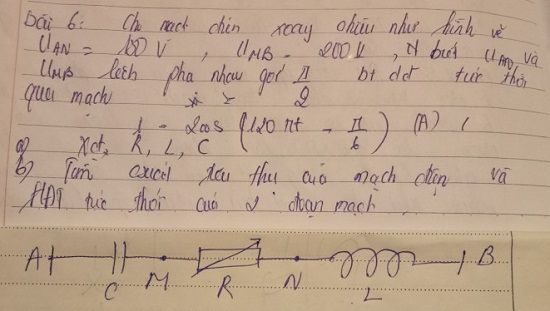 Bài 6: Cho mạch điện xoay chiều như hình vẽ
U_AN = 150 V, U_MB = 200 V, N biết U_AN và
U_MB lệch pha nhau góc π/2 bt dđ tức thời
qua mạch
i = 2cos (120πt - π/6) (A) /
a) Xđ, R, L, C
b) Tìm công suất tiêu thụ của mạch điện và
HĐT tức thời của 2 đoạn mạch
A C M R N L B